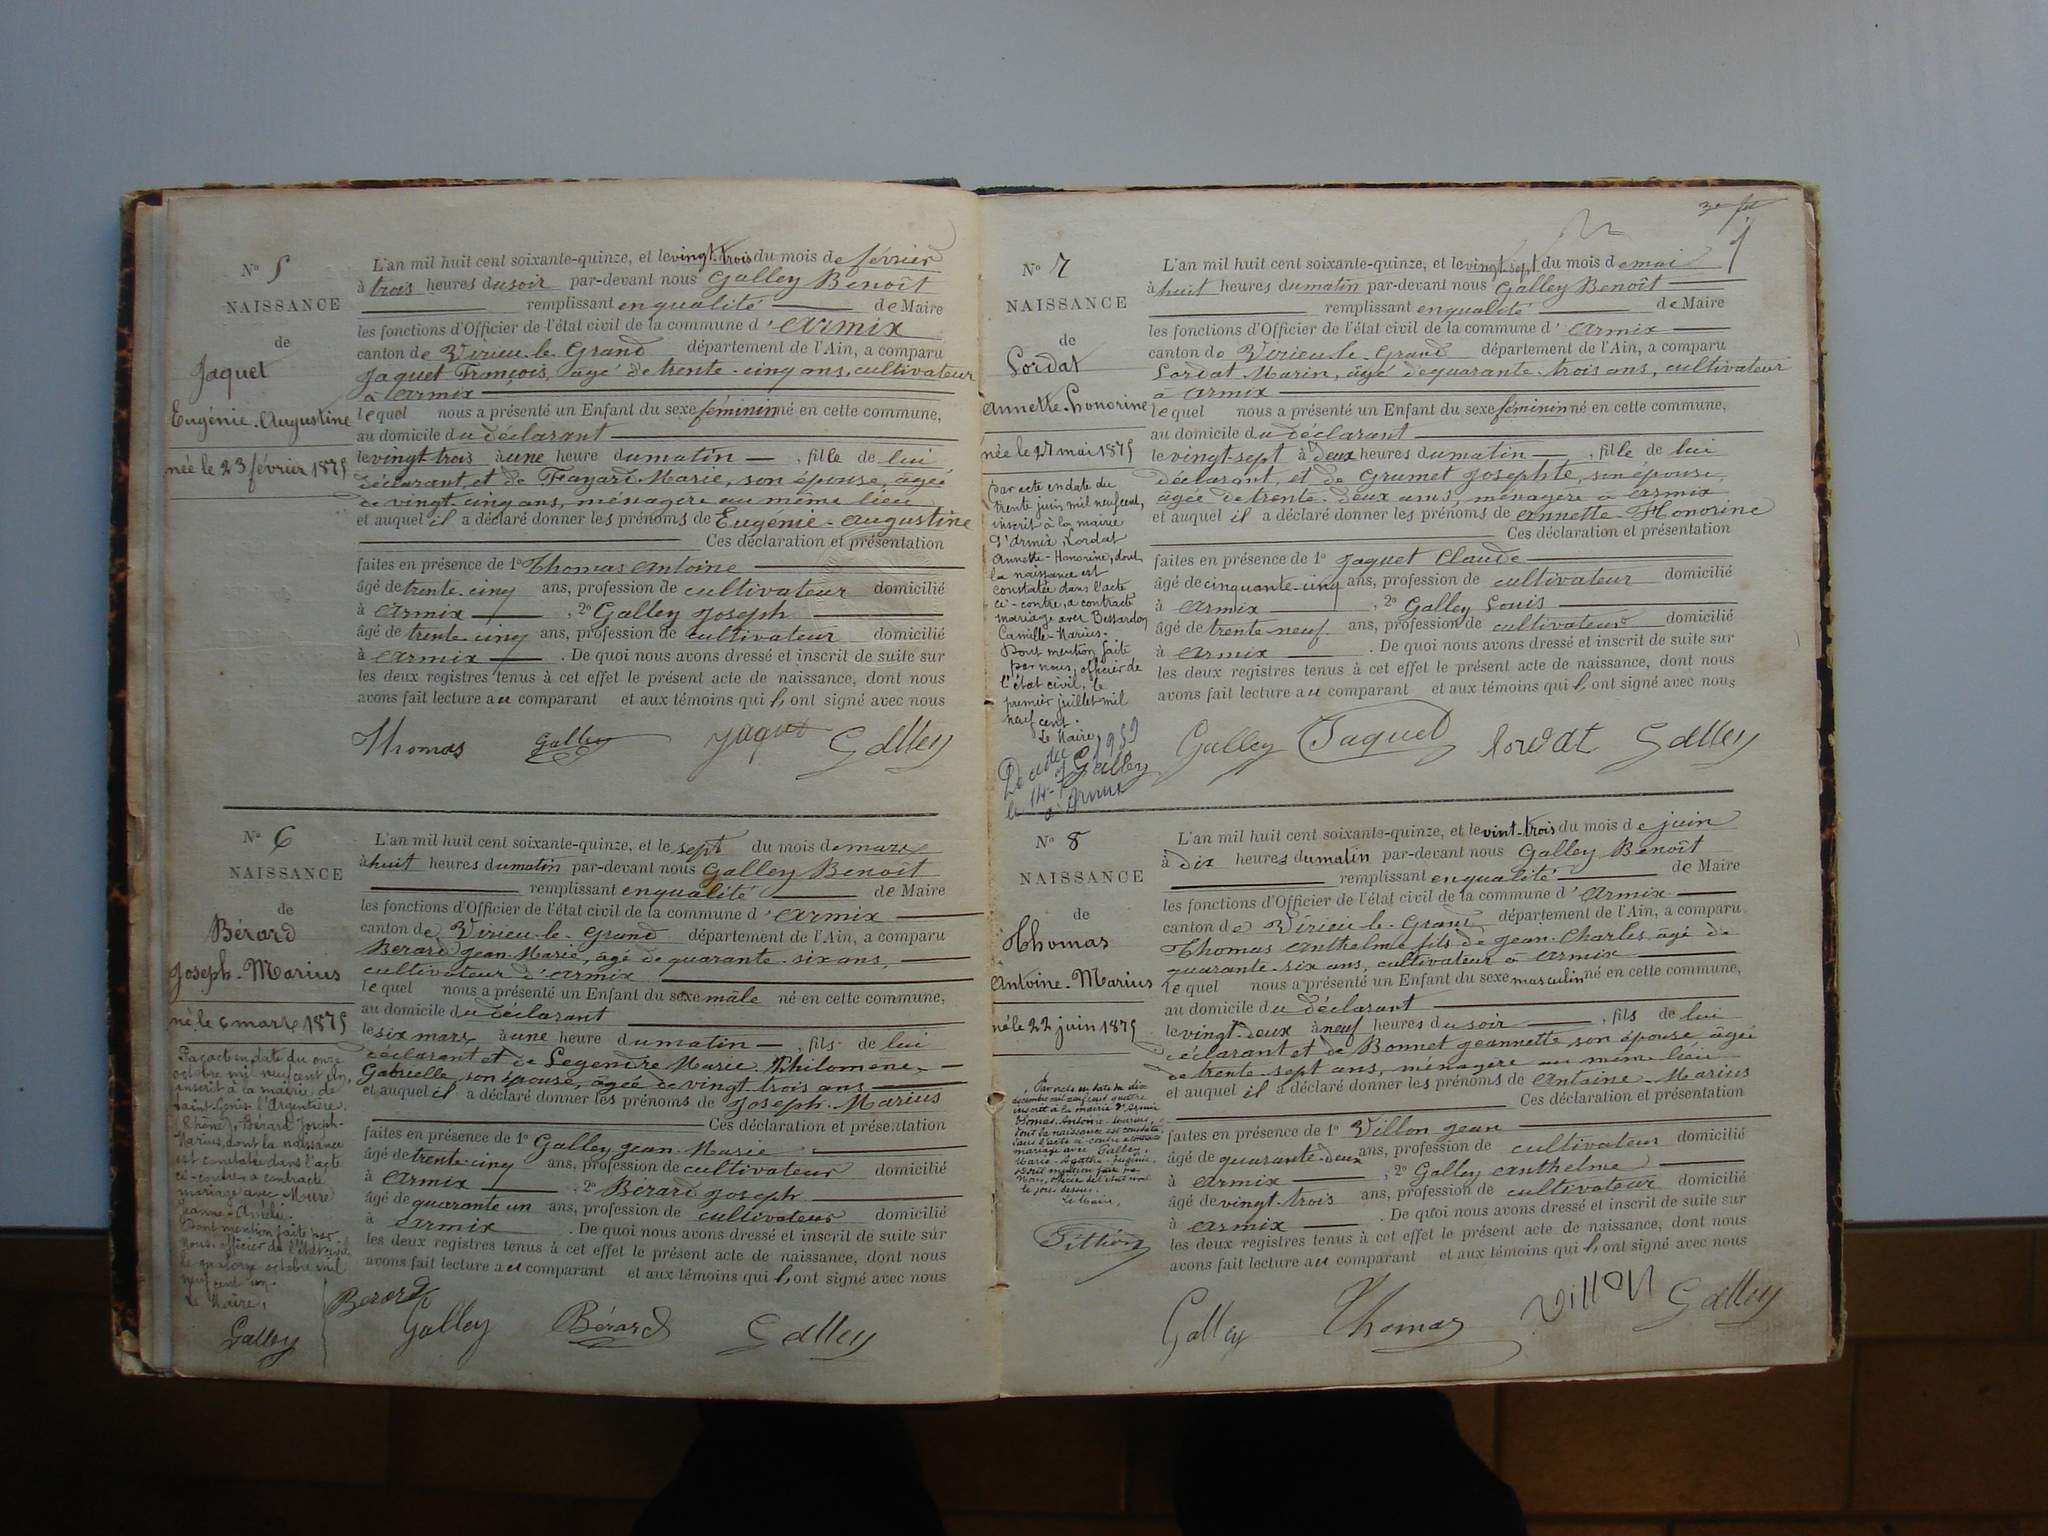 N° 5
NAISSANCE
de
Jaquet
Eugénie-Augustine
née le 23 février 1875
L'an mil huit cent soixante-quinze, et le vingt-trois du mois de février
à trois heures du soir par-devant nous Galley Benoît
remplissant en qualité de Maire
les fonctions d'Officier de l'état civil de la commune d'Armix
canton de Virieu-le-Grand département de l'Ain, a comparu
Jaquet François, âgé de trente-cinq ans, cultivateur
à Armix
lequel nous a présenté un Enfant du sexe féminin né en cette commune,
au domicile du déclarant
le vingt-trois à une heure du matin, fille de lui
déclarant, et de Fayard Marie, son épouse, âgée
de vingt-cinq ans, ménagère au même lieu
et auquel il a déclaré donner les prénoms de Eugénie-Augustine
Ces déclaration et présentation
faites en présence de 1° Thomas Antoine
âgé de trente-cinq ans, profession de cultivateur domicilié
à Armix, 2° Galley Joseph
âgé de trente-cinq ans, profession de cultivateur domicilié
à Armix. De quoi nous avons dressé et inscrit de suite sur
les deux registres tenus à cet effet le présent acte de naissance, dont nous
avons fait lecture au comparant et aux témoins qui l, ont signé avec nous
Thomas Galley Jaquet Galley
N° 6
NAISSANCE
de
Bérard
Joseph-Marius
né le 6 mars 1875
Par acte en date du onze
octobre mil neuf cent un,
inscrit à la mairie de
Saint-Genis l'Argentière,
(Rhône), Bérard Joseph-
Marius, dont la naissance
est constatée dans l'acte
ci-contre a contracté
mariage avec Mure
Jeanne
Dont mention faite par
Nous, officier de l'état civil
le quatorze octobre mil
neuf cent un.
Le Maire,
Galley
L'an mil huit cent soixante-quinze, et le sept du mois de mars
à huit heures du matin par-devant nous Galley Benoît
remplissant en qualité de Maire
les fonctions d'Officier de l'état civil de la commune d'Armix
canton de Virieu-le-Grand département de l'Ain, a comparu
Bérard Jean-Marie, âgé de quarante-six ans,
cultivateur d'Armix
lequel nous a présenté un Enfant du sexe mâle né en cette commune,
au domicile du déclarant
le six mars à une heure du matin, fils de lui
déclarant et de Legendre Marie Philomène,
Gabrielle, son épouse, âgée de vingt-trois ans
et auquel il a déclaré donner les prénoms de Joseph-Marius
Ces déclaration et présentation
faites en présence de 1° Galley Jean-Marie
âgé de trente-cinq ans, profession de cultivateur domicilié
à Armix, 2° Bérard Joseph
âgé de quarante un ans, profession de cultivateur domicilié
à Armix. De quoi nous avons dressé et inscrit de suite sur
les deux registres tenus à cet effet le présent acte de naissance, dont nous
avons fait lecture au comparant et aux témoins qui l, ont signé avec nous
Berard Galley Bérard Galley
3e
N° 7
NAISSANCE
de
Lordat
Annette-Honorine
née le 27 mai 1875
Par acte en date du
trente juin mil neuf cent,
inscrit à la mairie
d'Armix, Lordat
Annette-Honorine, dont
la naissance est
constatée dans l'acte
ci-contre, a contracté
mariage avec Bessardon
Camille-Marius.
Dont mention faite
par nous, officier de
l'état civil, le
premier juillet mil
neuf cent.
Le Maire,
Galley
Décédée
à Armix
L'an mil huit cent soixante-quinze, et le vingt-sept du mois de mai
à huit heures du matin par-devant nous Galley Benoît
remplissant en qualité de Maire
les fonctions d'Officier de l'état civil de la commune d'Armix
canton de Virieu-le-Grand département de l'Ain, a comparu
Lordat Marin, âgé de quarante-trois ans, cultivateur
à Armix
lequel nous a présenté un Enfant du sexe féminin né en cette commune,
au domicile du déclarant
le vingt-sept à deux heures du matin, fille de lui
déclarant, et de Grumet Josephte, son épouse,
âgée de trente-deux ans, ménagère à Armix
et auquel il a déclaré donner les prénoms de Annette-Honorine
Ces déclaration et présentation
faites en présence de 1° Jaquet Claude
âgé de cinquante-cinq ans, profession de cultivateur domicilié
à Armix, 2° Galley Louis
âgé de trente-neuf ans, profession de cultivateur domicilié
à Armix. De quoi nous avons dressé et inscrit de suite sur
les deux registres tenus à cet effet le présent acte de naissance, dont nous
avons fait lecture au comparant et aux témoins qui l, ont signé avec nous
Galley Jaquet lordat Galley
N° 8
NAISSANCE
de
Thomas
Antoine-Marius
né le 22 juin 1875
Par acte en date du dix
décembre mil neuf cent quatre
inscrit à la mairie d'Armix
Thomas Antoine-Marius,
dont la naissance est constatée
dans l'acte ci-contre a contracté
mariage avec Galley,
Marie-Agathe-Eugénie.
Dont mention faite par
Nous, officier de l'état civil
le jour dessus.
Le Maire,
L'an mil huit cent soixante-quinze, et le vint-trois du mois de juin
à dix heures du matin par-devant nous Galley Benoît
remplissant en qualité de Maire
les fonctions d'Officier de l'état civil de la commune d'Armix
canton de Virieu-le-Grand département de l'Ain, a comparu
Thomas Anthelme fils de Jean-Charles, âgé de
quarante-six ans, cultivateur à Armix
lequel nous a présenté un Enfant du sexe masculin né en cette commune,
au domicile du déclarant
le vingt-deux à neuf heures du soir, fils de lui
déclarant et de Bonnet Jeannette son épouse âgée
de trente-sept ans, ménagère au même lieu
et auquel il a déclaré donner les prénoms de Antoine-Marius
Ces déclaration et présentation
faites en présence de 1° Villon Jean
âgé de quarante-deux ans, profession de cultivateur domicilié
à Armix, 2° Galley Anthelme
âgé de vingt-trois ans, profession de cultivateur domicilié
à Armix. De quoi nous avons dressé et inscrit de suite sur
les deux registres tenus à cet effet le présent acte de naissance, dont nous
avons fait lecture au comparant et aux témoins qui l, ont signé avec nous
Galley Thomas Villon Galley